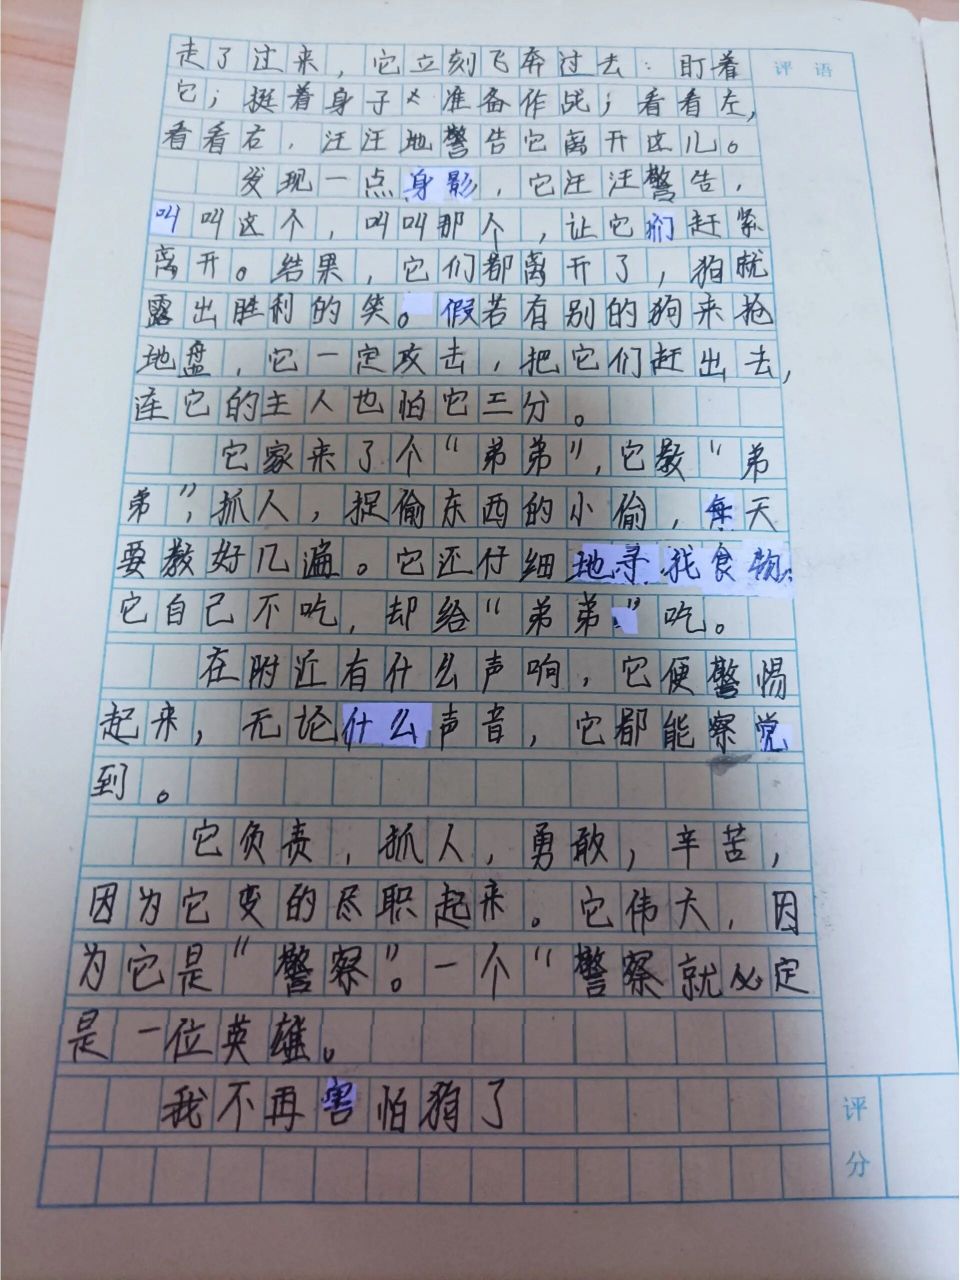 走了过来，它立刻飞奔过去：盯着
评语
它；挺着身子准备作战；看看左，
看看右，汪汪地警告它离开这儿。
发现一点身影，它汪汪警告，
叫叫这个，叫叫那个，让它们赶紧
离开。结果，它们都离开了，狗就
露出胜利的笑。假若有别的狗来抢
地盘，它一定攻击，把它们赶出去，
连它的主人也怕它三分。
它家来了个“弟弟”，它教“弟
弟”，抓人，捉偷东西的小偷，每天
要教好几遍。它还仔细地寻找食物：
它自己不吃，却给“弟弟”吃。
在附近有什么声响，它便警惕
起来，无论什么声音，它都能察觉
到。
它负责，抓人，勇敢，辛苦，
因为它变的尽职起来。它伟大，因
为它是“警察”。一个“警察就必定
是一位英雄。
我不再害怕狗了
评分